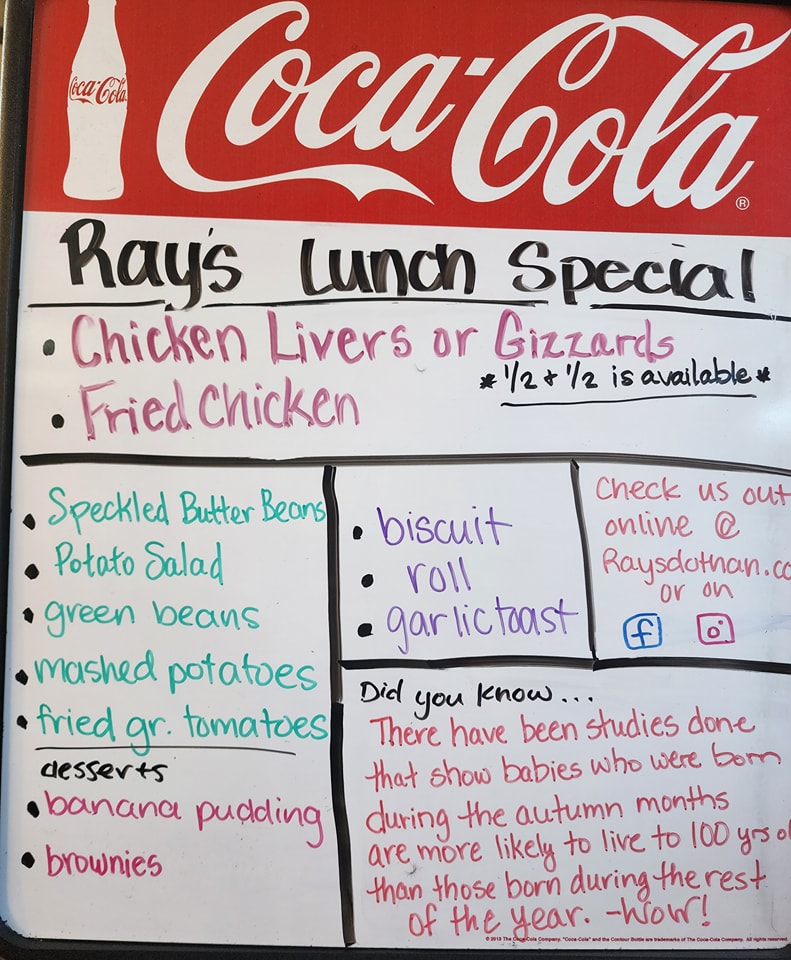 Coca-Cola
Coca-Cola ®
Ray's Lunch Special
• Chicken Livers or Gizzards
* 1/2 + 1/2 is available *
• Fried Chicken
• Speckled Butter Beans
• Potato Salad
• green beans
• mashed potatoes
• fried gr. tomatoes
desserts
• banana pudding
• brownies
• biscuit
• roll
• garlic toast
Check us out
online @
Raysdothan.co
or on
f
Did you know...
There have been studies done
that show babies who were born
during the autumn months
are more likely to live to 100 yrs ol
than those born during the rest
of the year. -WOW!
© 2019 The Coca-Cola Company. "Coca-Cola" and the Contour Bottle are trademarks of The Coca-Cola Company. All rights reserved.